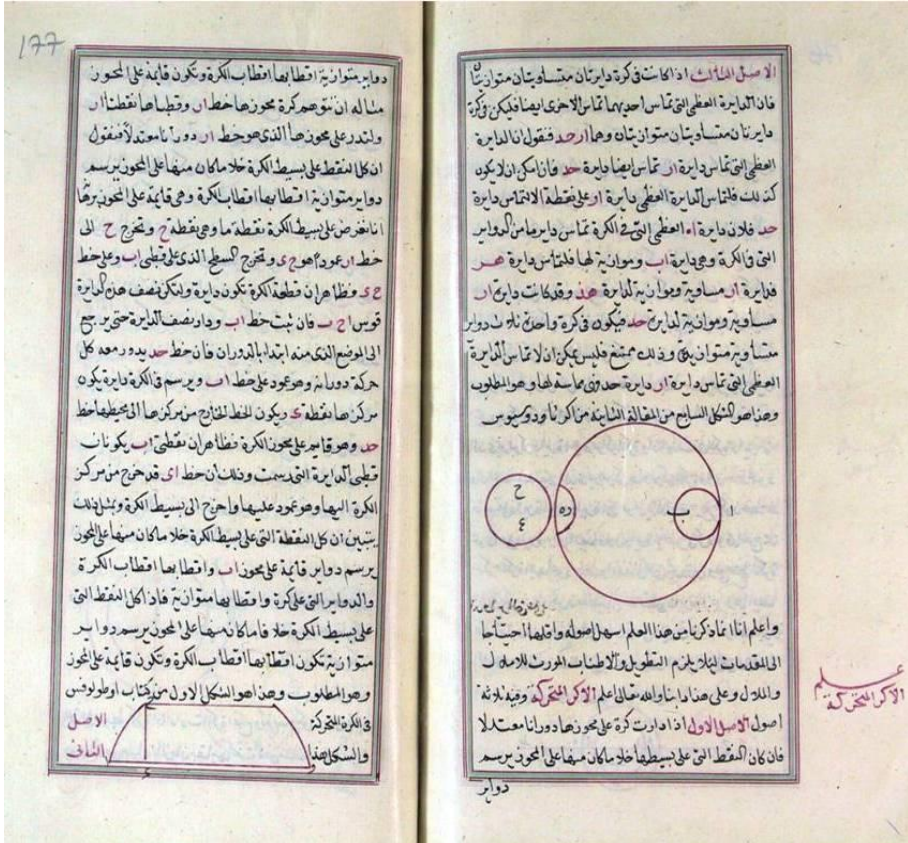 الاصل الثالث اذا كانت فى كرة دايرتان متساويتان متوازيتان
فان الدايرة العظمى التى تماس احديهما تماس الاخرى ايضا فليكن فى كرة
دايرتان متساويتان متوازيتان وهما ار حد فنقول ان الدايرة
العظمى التى تماس دايرة ار تماس ايضا دايرة حد فان امكن ان لا يكون
كذلك فلتماس الدايرة العظمى دايرة ار على نقطة ا لا تماس دايرة
حد فلان دايرة اه العظمى التى فى الكرة تماس دايرة ما من الدواير
التى فى الكرة وهى دايرة اب وموازية لها فلتماس دايرة هر
فدايرة ار مساوية وموازية لدايرة هد وقد كانت دايرة ار
مساوية وموازية لدايرة حد فيكون فى كرة واحدة ثلاث دواير
متساوية متوازية وذلك ممتنع فليس يمكن ان لا تماس الدايرة
العظمى التى تماس دايرة ار دايرة حد فهى مماسة لها وهو المطلوب
وهذا هو الشكل السابع من المقالة الثانية من اكر ثاودوسيوس
ح
ع
ره
ا
واعلم انا انما ذكرنا من هذا العلم اسهل اصوله واقلها احتياجا
الى المقدمات ليلا يلزم التطويل والاطناب المورث للاملال
والملال وعلى هذا دابنا والله تعالى اعلم الاكر المتحركة وفيه ثلاثة
اصول الاصل الاول اذا دارت كرة على محورها دورانا معتدلا
فان كان النقط التى على بسيطها خلا ما كان منها على المحور يرسم
دواير
علم
الاكر المتحركة
177
دواير متوازية اقطابها اقطاب الكرة وتكون قايمة على المحور
مثاله ان نتوهم كرة محورها خط ار وقطباها نقطتا ار
ولتدر على محورها الذى هو خط ار دورانا معتدلا فنقول
ان كل النقط على بسيط الكرة خلا ما كان منها على المحور يرسم
دواير متوازية اقطابها اقطاب الكرة وهى قايمة على المحور برهانه
انا نفرض على بسيط الكرة نقطة ما وهى نقطة ح ونخرج ح الى
خط ار عودا هو ح ى ونخرج السطح الذى على قطبى اب وعلى خط
ح ى فظاهر ان قطعة الكرة تكون دايرة وليكن نصف هذه الدايرة
قوس اح ب فان ثبت خط اب ودار نصف الدايرة حتى يرجع
الى الموضع الذى منه ابتدا بالدوران فان خط حد يدور معه كل
حركة دورانه وهو عود على خط اب ويرسم فى الكرة دايرة يكون
مركزها نقطة ى ويكون الخط الخارج من مركزها الى محيطها خط
حد وهو قايم على محور الكرة فظاهر ان نقطتى اب يكونان
قطبى الدايرة التى رسمت وذلك ان خط اى قد خرج من مركز
الكرة اليها وهو عمود عليها واخرج الى بسيط الكرة وبمثل ذلك
يتبين ان كل النقطة التى على بسيط الكرة خلا ما كان منها على المحور
يرسم دواير قايمة على محور اب واقطابها اقطاب الكرة
والدواير التى على كرة واقطابها متوازية فاذا كل النقط التى
على بسيط الكرة خلا ما كان منها على المحور يرسم دواير
متوازية تكون اقطابها اقطاب الكرة وتكون قايمة على المحور
وهو المطلوب وهذا هو الشكل الاول من كتاب اوطولوقس
فى الكرة المتحركة
والشكل هذا
الاصل
الثانى